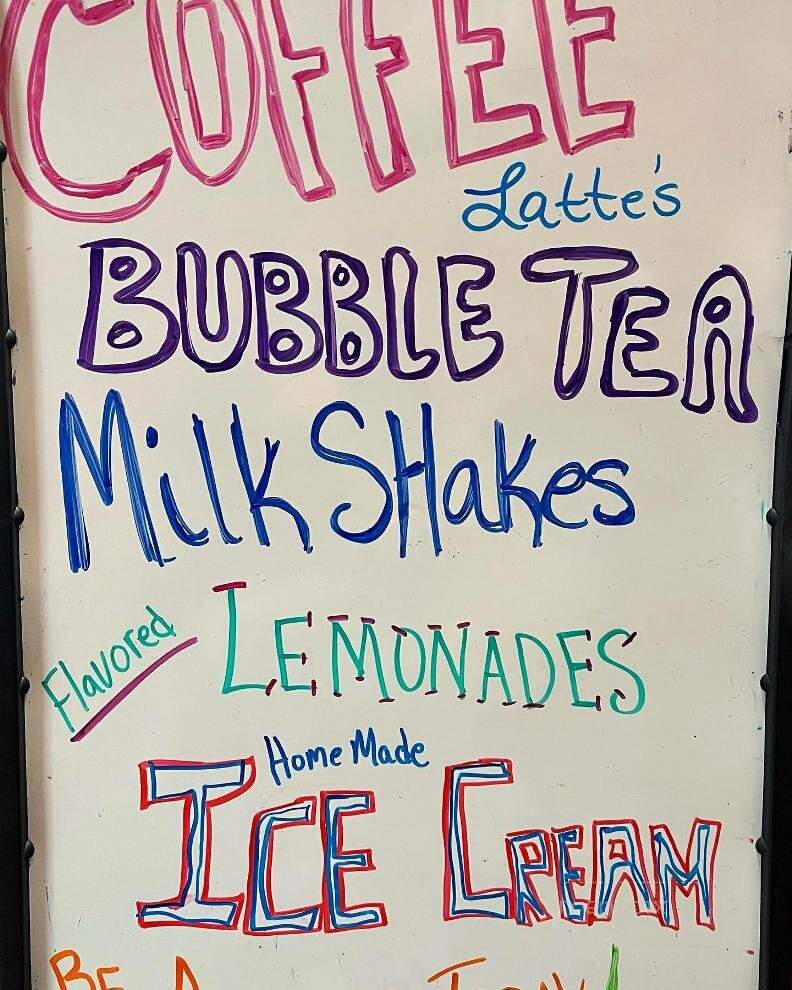 COFFEE
Latte's
BUBBLE TEA
Milk SHakes
Flavored LEMONADES
Home Made
ICE CREAM
BE A